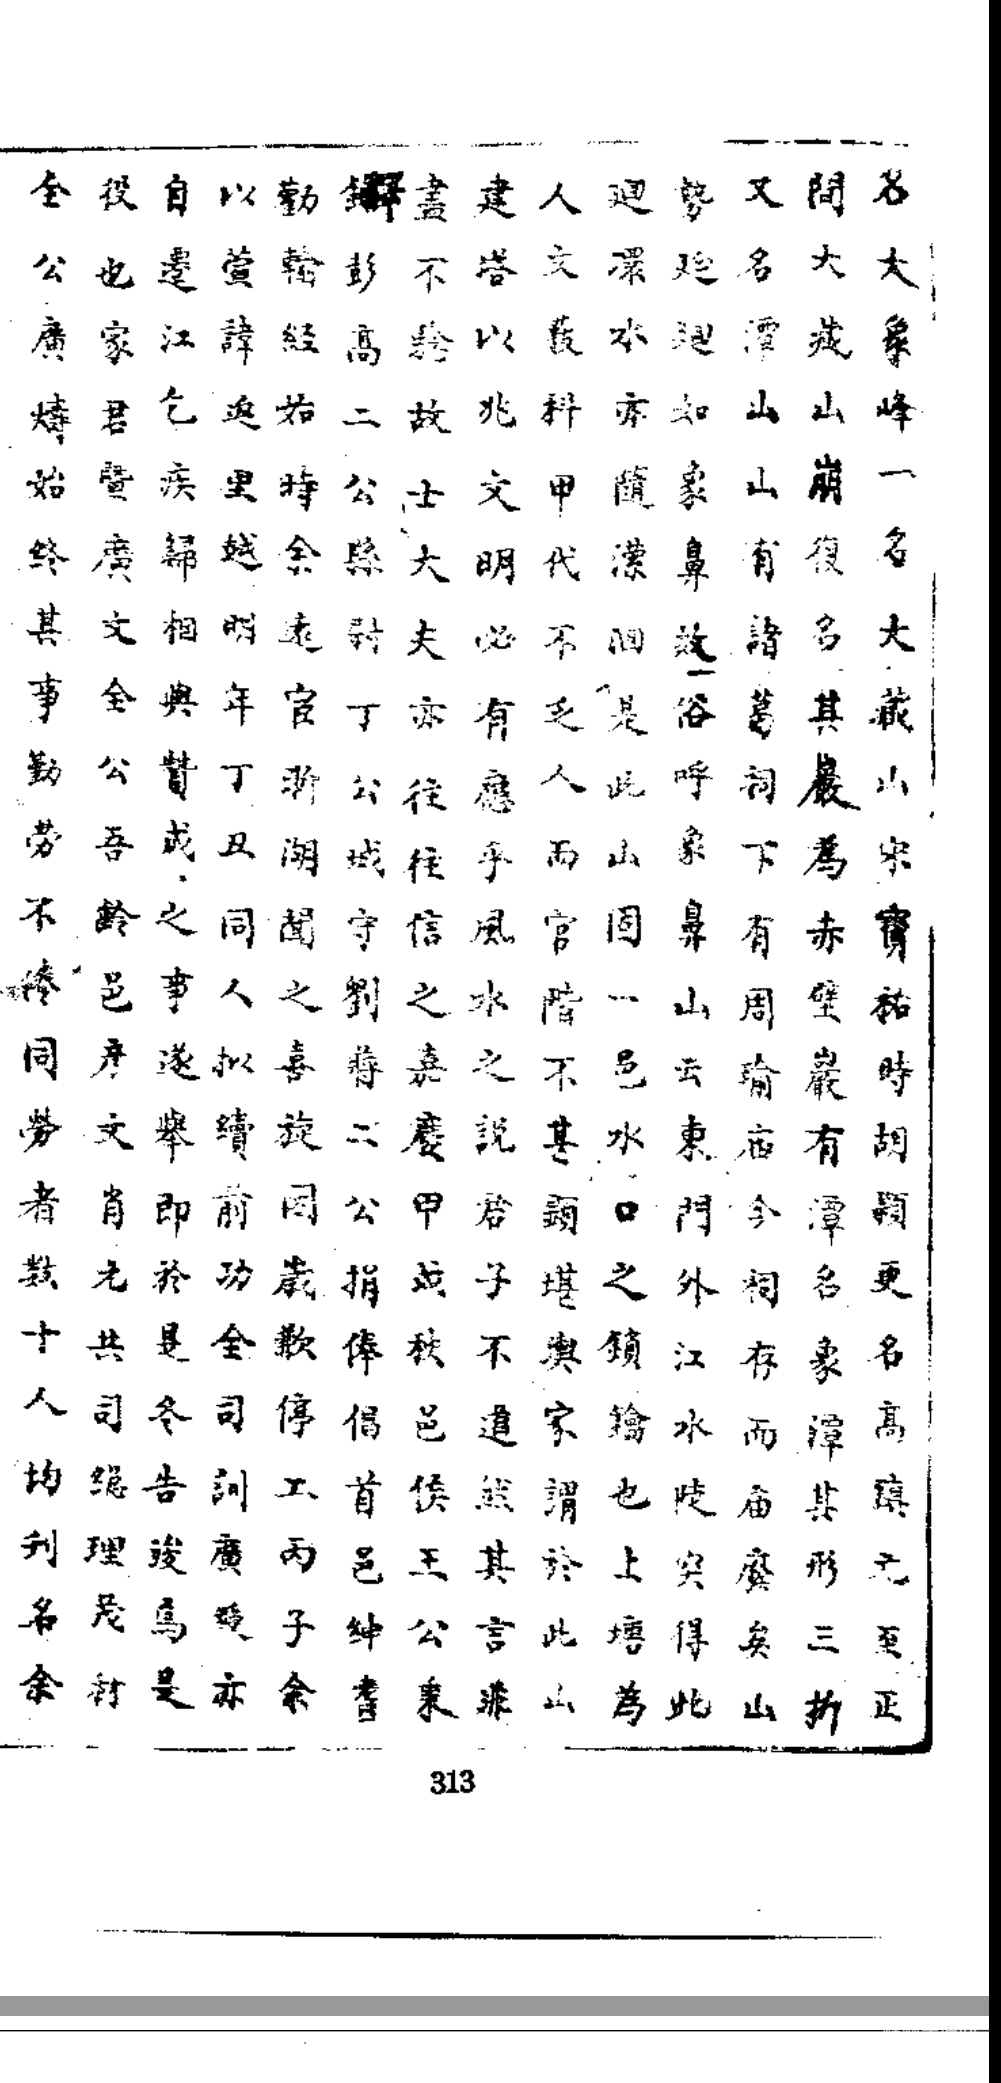 名大象峰一名大藏山宋寳祐時胡頴更名高鎮元至正
間大藏山崩復名其巖為赤壁巖有潭名象潭其形三折
又名潭山山有諸葛祠下有周瑜庙今祠存而庙廢矣山
勢迤廻如象鼻故俗呼象鼻山云東門外江水陡突得此
廻環水亦隨濚洄是此山固一邑水口之鎖鑰也上塔為
人文發科甲代不乏人而官階不甚顕堪輿家謂於此山
建塔以兆文明必有應乎風水之説君子不道然其言非
盡不驗故士大夫亦往往信之嘉慶甲戌秋邑侯王公秉
鐸彭高二公縣尉丁公城守劉蔣二公捐俸倡首邑紳耆
勤輸經始時余遠宦浙湖聞之喜旋因歲歉停工丙子余
以萱諱返里越明年丁丑同人拟續前功全司訓廣煖亦
自遷江乞疾歸相與賛成之事遂舉即於是冬告竣焉是
役也家君暨廣文全公吾齡邑庠文肖元共司總理茂材
全公廣燽始終其事勤劳不倦同勞者数十人均刋名余
313